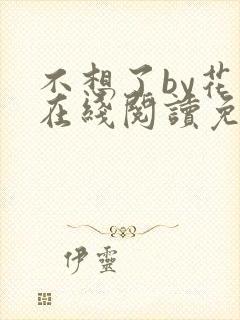 不想了by花
在綫閱讀免
伊靈